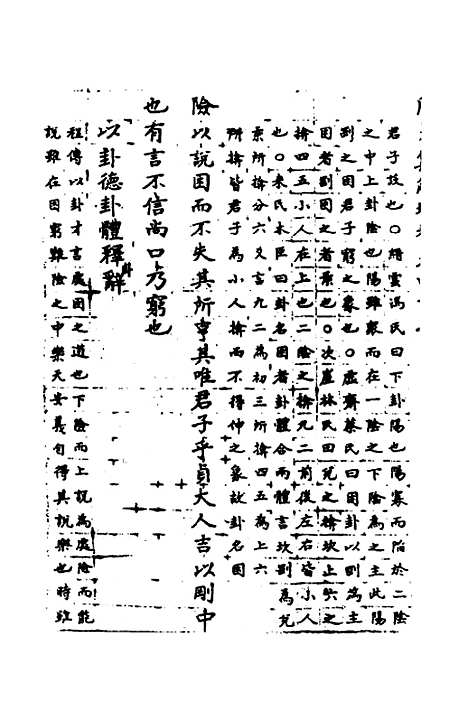 君子故也○縉雲馮氏曰下卦陽也陽寡而陷於二陰
之中上卦陰也陽雖衆而在一陰之下陰為之主此陽
困君子窮之象也○虛齋蔡氏曰困卦以剛為主
林氏曰兌之揜坎上六之
揜四五小人在上也二陰之揜九二前後左右皆小人
也○朱氏曰卦名困者卦體合兩體言坎剛為兌
柔所揜分六爻言九二為初三所揜四五為上六
所揜皆君子為小人揜而不得伸之象故卦名困
險以說困而不失其所亨其唯君子乎貞大人吉以剛中
也有言不信尚口乃窮也
以卦德卦體釋卦辭
程傳以卦才言處困之道也下險而上說為處險而能
說雖在困窮艱險之中樂天安義自得其說樂也時雖